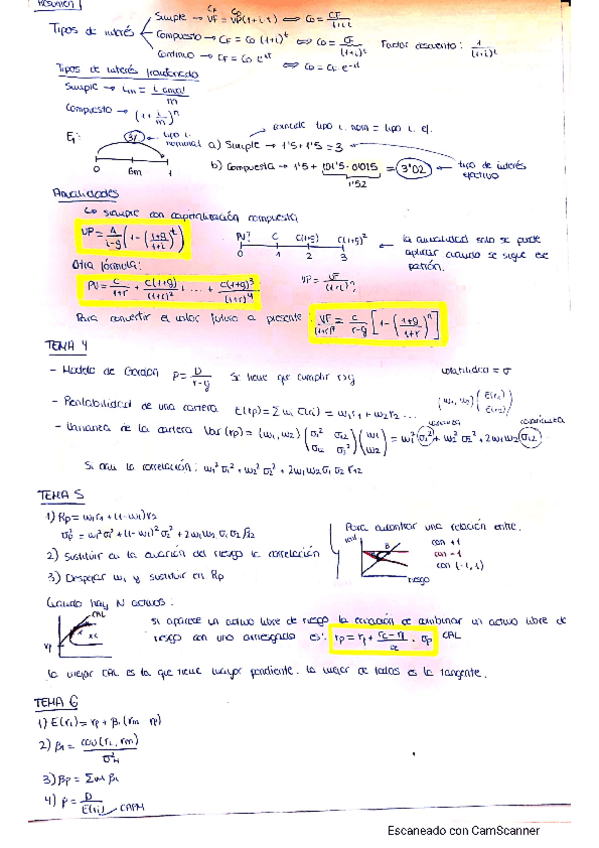 Resumen
Simple → VF = VP(1+i·t) ⟺ C0 = CF/(1+i·t)
CF C0
Tipos de interés
Compuesto → CF = C0 (1+i)^t ⟺ C0 = CF/(1+i)^t Factor descuento: 1/(1+i)^t
Continuo → CF = C0 e^it ⟺ C0 = CF e^-it
Tipos de interés fraccionado
Simple → im = i anual/m
Compuesto → (1 + i/m)^n
Ej: 3% tipo i. nominal
0 6m 1
coincide tipo i. nom = tipo i. ef.
a) Simple → 1'5 + 1'5 = 3
b) Compuesta → 1'5 + 101'5 · 0'015 = 3'02 ← tipo de interés efectivo
1'52
Anualidades
↳ siempre con capitalización compuesta
VP = A/(i-g) (1 - (1+g/1+i)^t)
PV? C C(1+g) C(1+g)²
0 1 2 3
← la anualidad solo se puede aplicar cuando se sigue ese patrón.
Otra fórmula:
PV = C/(1+r) + C(1+g)/(1+r)² + ... + C(1+g)³/(1+r)⁴
Para convertir el valor futuro a presente: VF/(1+r)ⁿ = C/(r-g) [1 - (1+g/1+r)ⁿ]
TEMA 4
- Modelo de Gordon P = D/(r-g) Se tiene que cumplir r>g
volatilidad = σ
- Rentabilidad de una cartera E(rp) = Σwi E(ri) = w1r1 + w2r2 ...
(w1, w2) (E(r1) E(r2))
- Varianza de la cartera Var(rp) = (w1, w2) (σ1² σ12 σ12 σ2²) (w1 w2) = w1² σ1² + w2² σ2² + 2w1w2 σ12
varianza covarianza
Si dan la correlación: w1² σ1² + w2² σ2² + 2w1w2 σ1 σ2 r12
TEMA 5
1) Rp = w1r1 + (1-w1)r2
σp² = w1² σ1² + (1-w1)² σ2² + 2w1w2 σ1 σ2 ρ12
2) Sustituir en la ecuación del riesgo la correlación
3) Despejar w1 y sustituir en Rp
Para encontrar una relación entre.
con +1
con -1
con (-1, 1)
riesgo
Cuando hay N activos:
CAL
Si aparece un activo libre de riesgo la ecuación de combinar un activo libre de
riesgo con uno arriesgado es: CAL
la mejor CAL es la que tiene mayor pendiente. la mejor de todas es la tangente.
TEMA 6
2) βi = cov(ri, rm)/σ²m
3) βp = Σwi βi
4) P = D/E(ri) CAPM
Escaneado con CamScanner